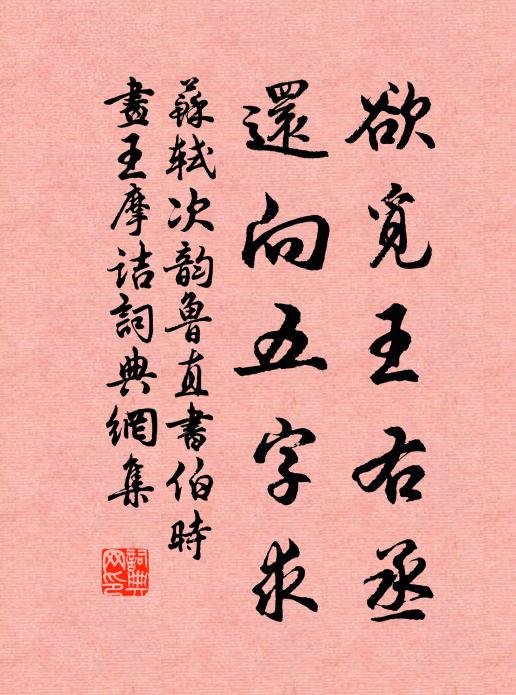 欲覓王右丞
還向五字求
蘇軾次韵魯直書伯時
畫王摩詰詞典網集
詞典网印